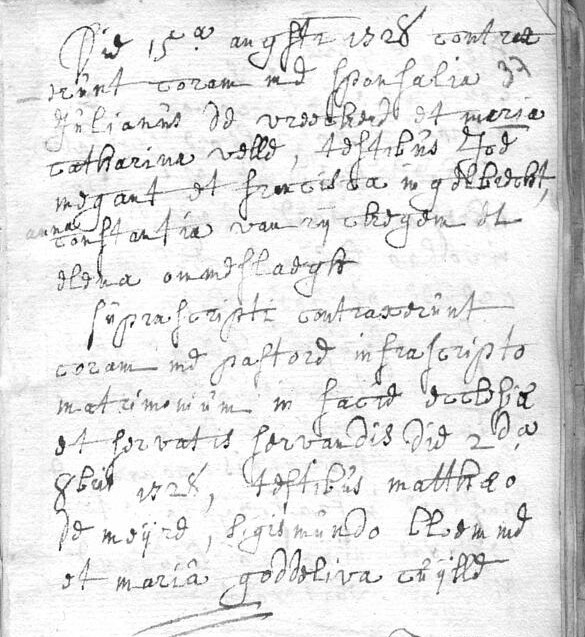 Die 15ᵃ augusti 1728 contrax
erunt coram me sponsalia 37
Julianus de vreeheid et maria
catharina velle, testibus Joe
megant et francisca ingelbrecht,
anna
constantia van rijckegem et
elena ommeslaegh
suprascripti contraxerunt
coram me pastore infrascripto
matrimonium in facie ecclesiæ
et servatis servandis die 2dᵃ
8bris 1728, testibus matthæo
de meijre, sigismundo bloemme
et mariâ godeliva cuijlle